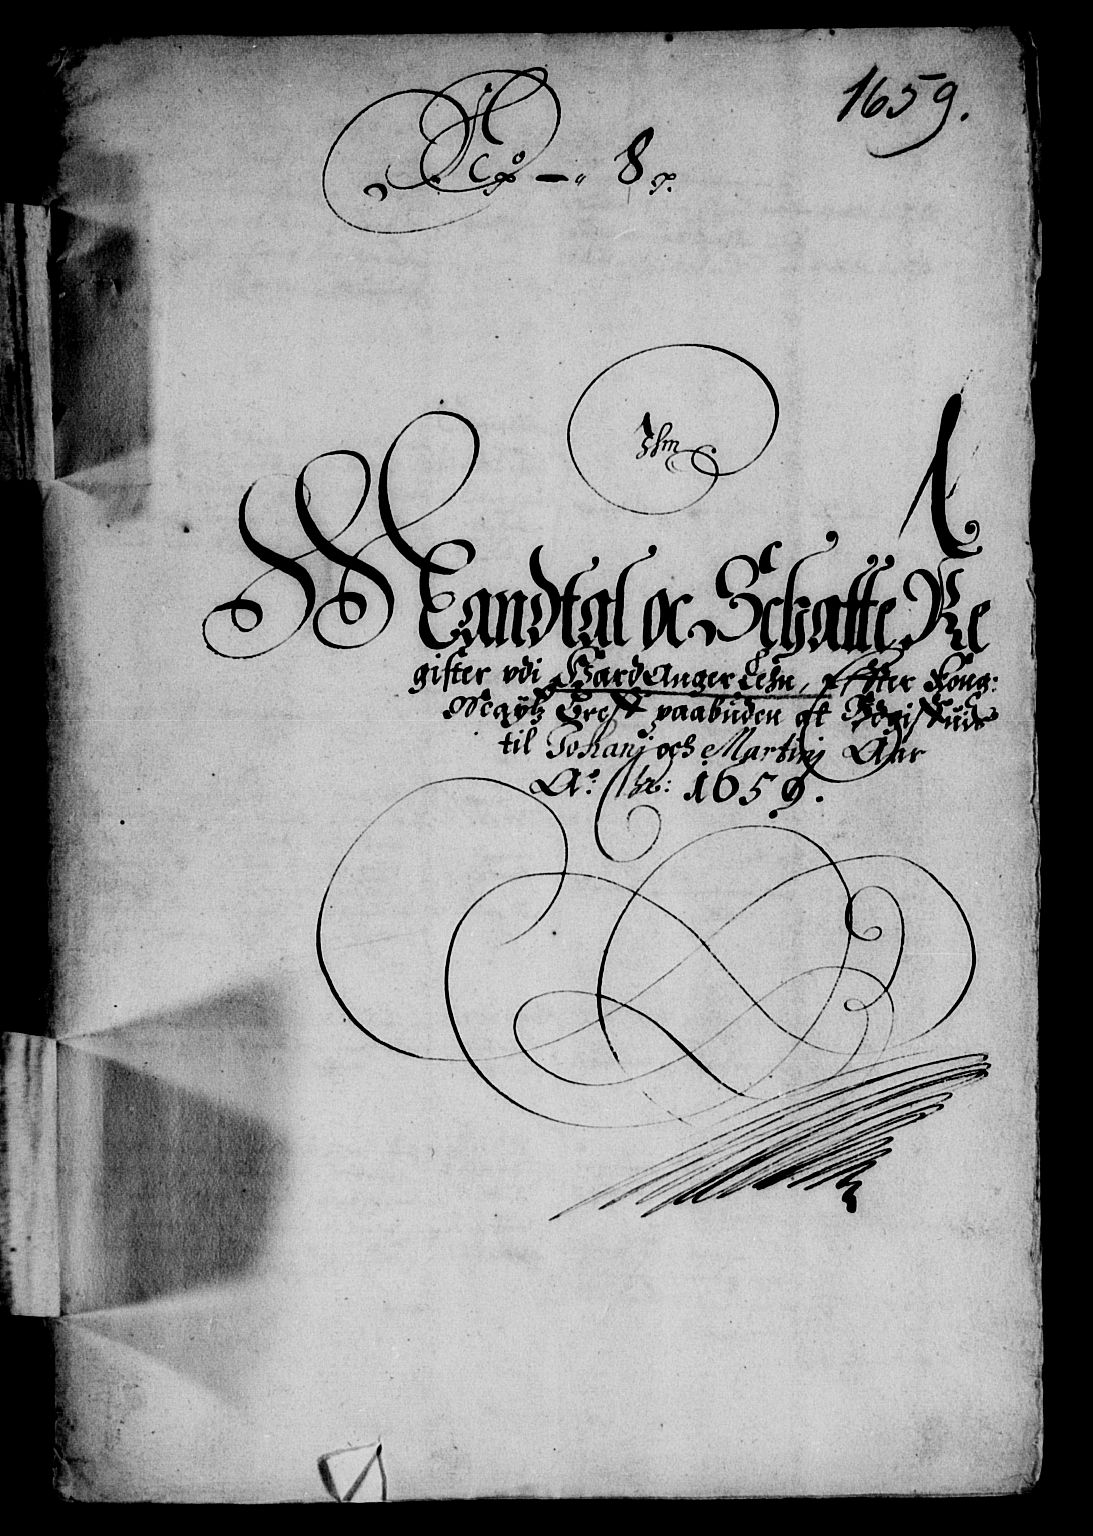 1659.
No - 8
Jhm
Mandtal oc Schatte Re
gister vdi Hardanger Lehn, Effter Kong:
Maÿtz Breff paabuden at
til Johanj och Martinj Aar
Ao: Chr: 1659.